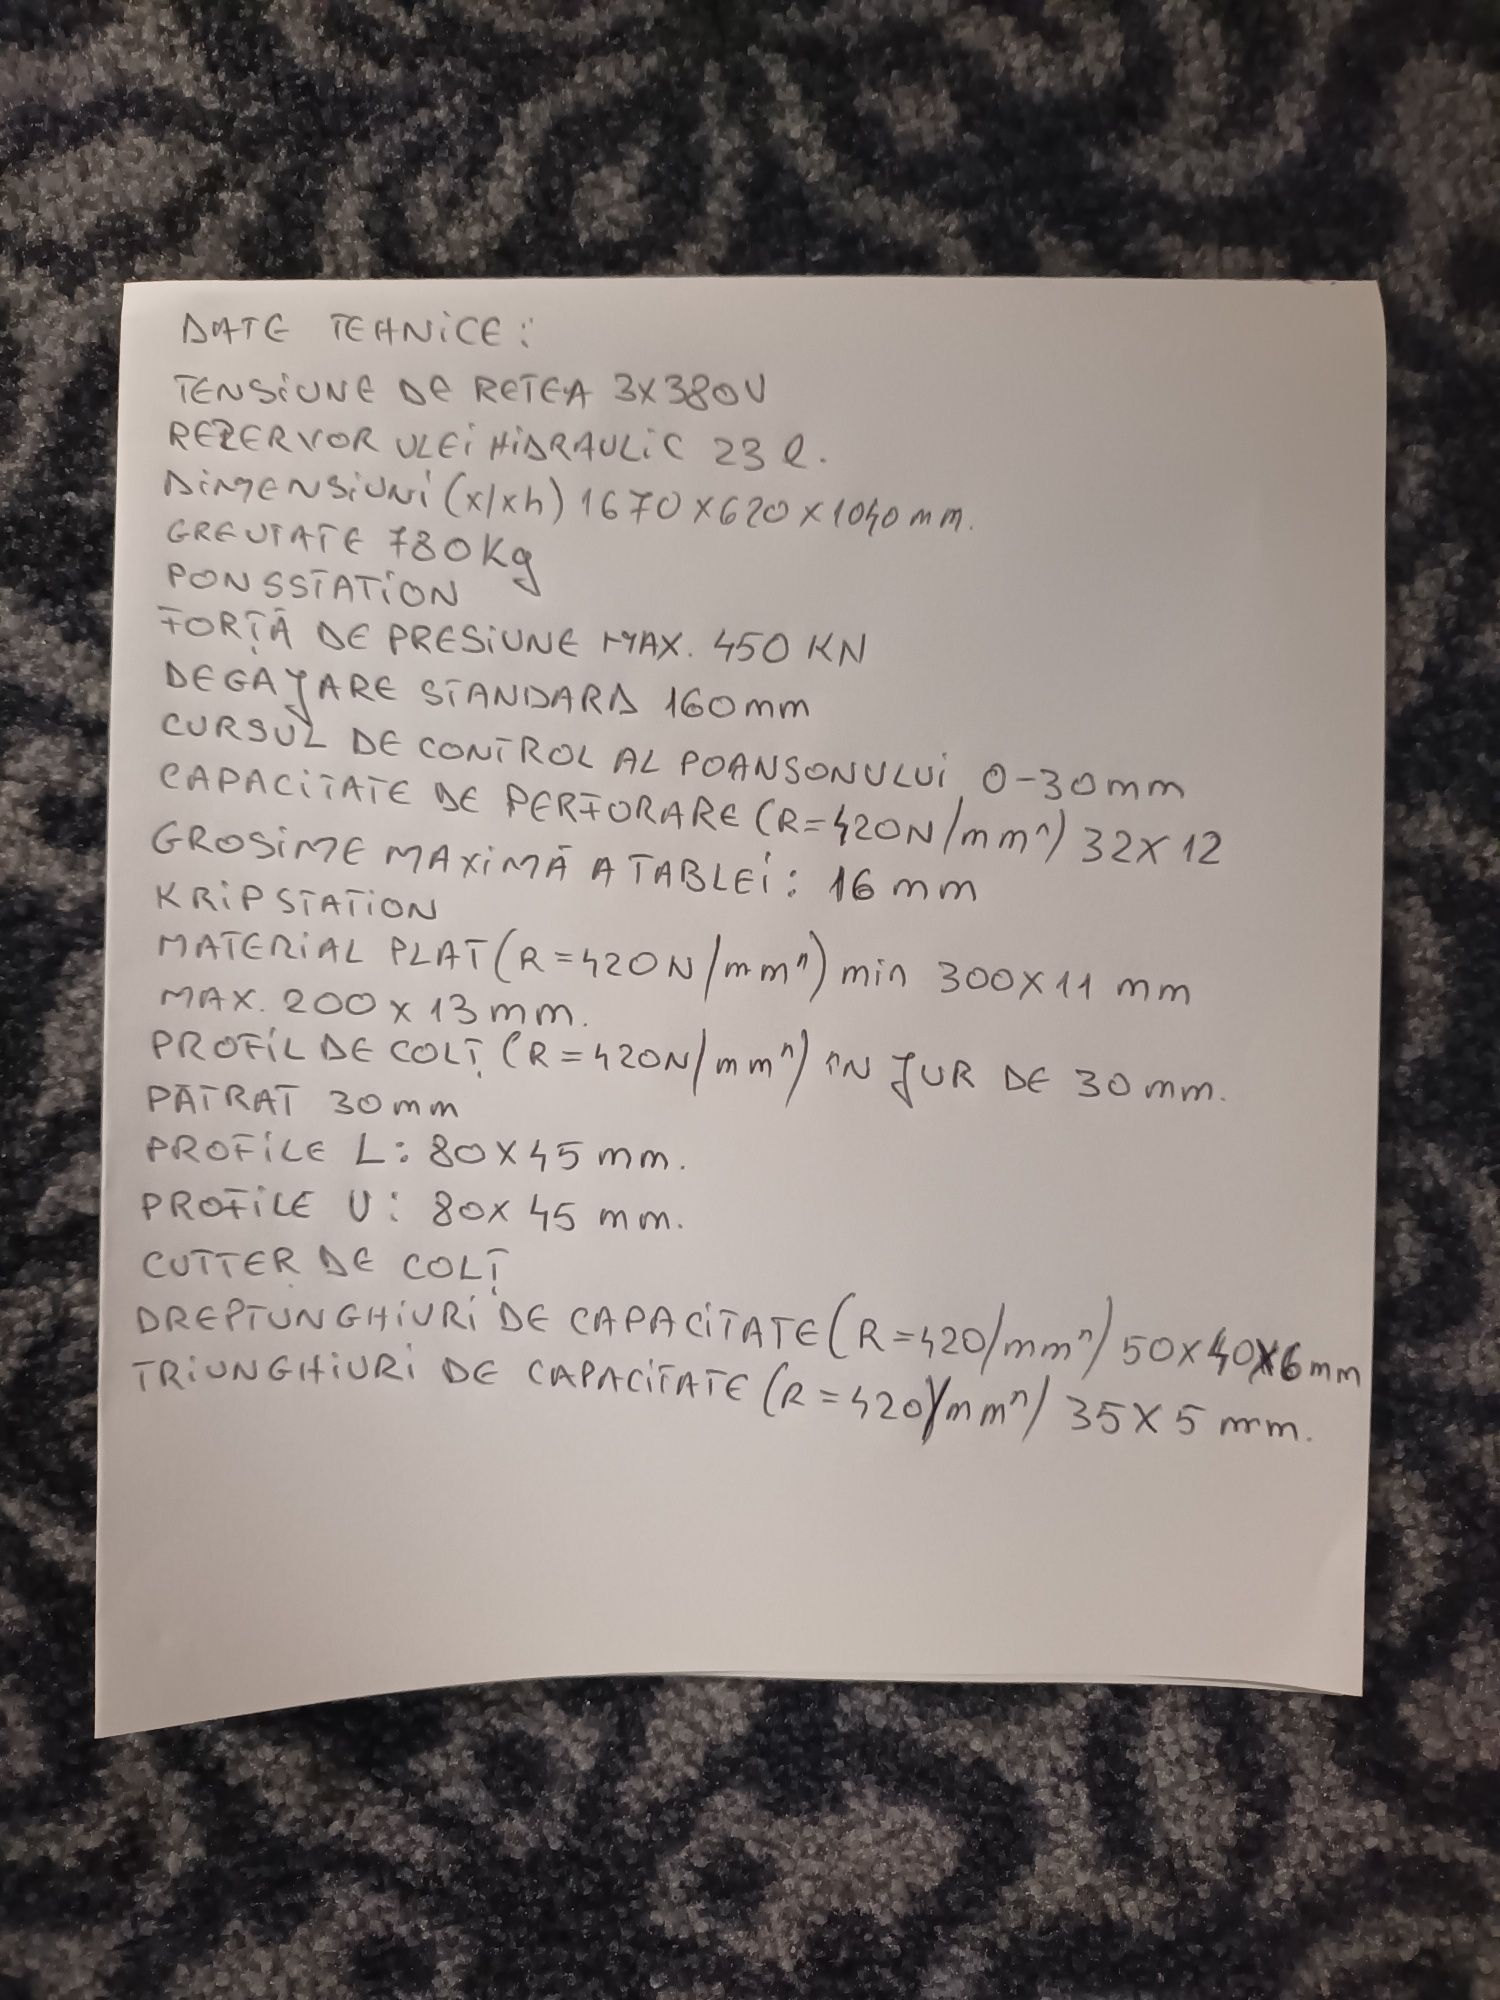 DATE TEHNICE:
TENSIUNE DE RETEA 3X380V
REZERVOR ULEI HIDRAULIC 23 l.
DIMENSIUNI (x/xh) 1670x620x1040 mm.
GREUTATE 780Kg
PONSSTATION
FORȚĂ DE PRESIUNE MAX. 450 KN
DEGAJARE STANDARD 160mm
CURSUL DE CONTROL AL POANSONULUI 0-30mm
CAPACITATE DE PERFORARE (R=420N/mmⁿ) 32X12
GROSIME MAXIMĂ A TABLEI: 16 mm
KRIPSTATION
MATERIAL PLAT (R=420N/mmⁿ) min 300X11 mm
MAX. 200 x 13 mm.
PROFIL DE COLȚ (R=420N/mmⁿ) ÎN JUR DE 30 mm.
PĂTRAT 30 mm
PROFILE L: 80X45 mm.
PROFILE U: 80X 45 mm.
CUTTER DE COLȚ
DREPTUNGHIURI DE CAPACITATE (R=420/mmⁿ) 50x40x6 mm
TRIUNGHIURI DE CAPACITATE (R=420/mmⁿ) 35X5 mm.